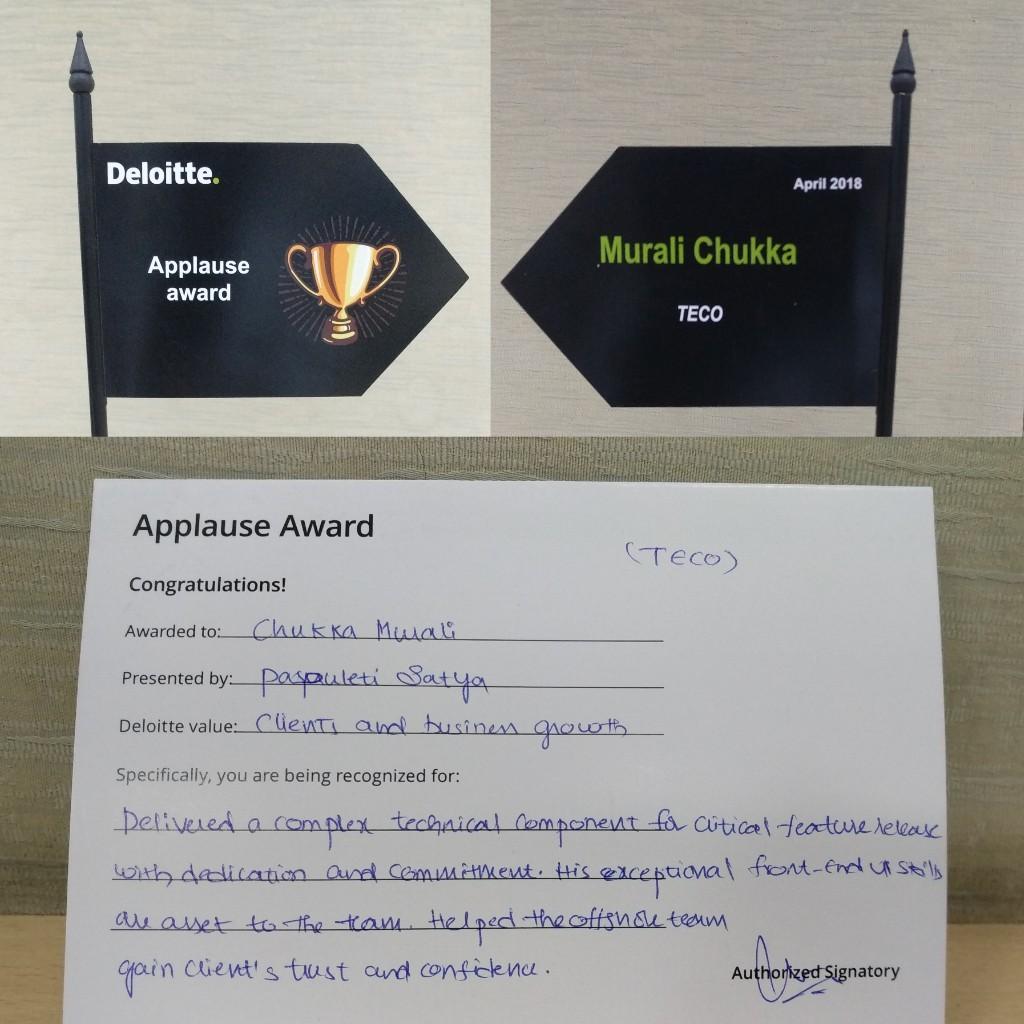 Deloitte.
Applause
award
April 2018
Murali Chukka
TECO
Applause Award
(TECO)
Congratulations!
Awarded to: Chukka Murali
Presented by: Paspuleti Satya
Deloitte value: Clients and business growth
Specifically, you are being recognized for:
Delivered a complex technical component for critical feature release
with dedication and commitment. His exceptional front-end UI skills
are asset to the team. Helped the offshore team
gain client's trust and confidence.
Authorized Signatory